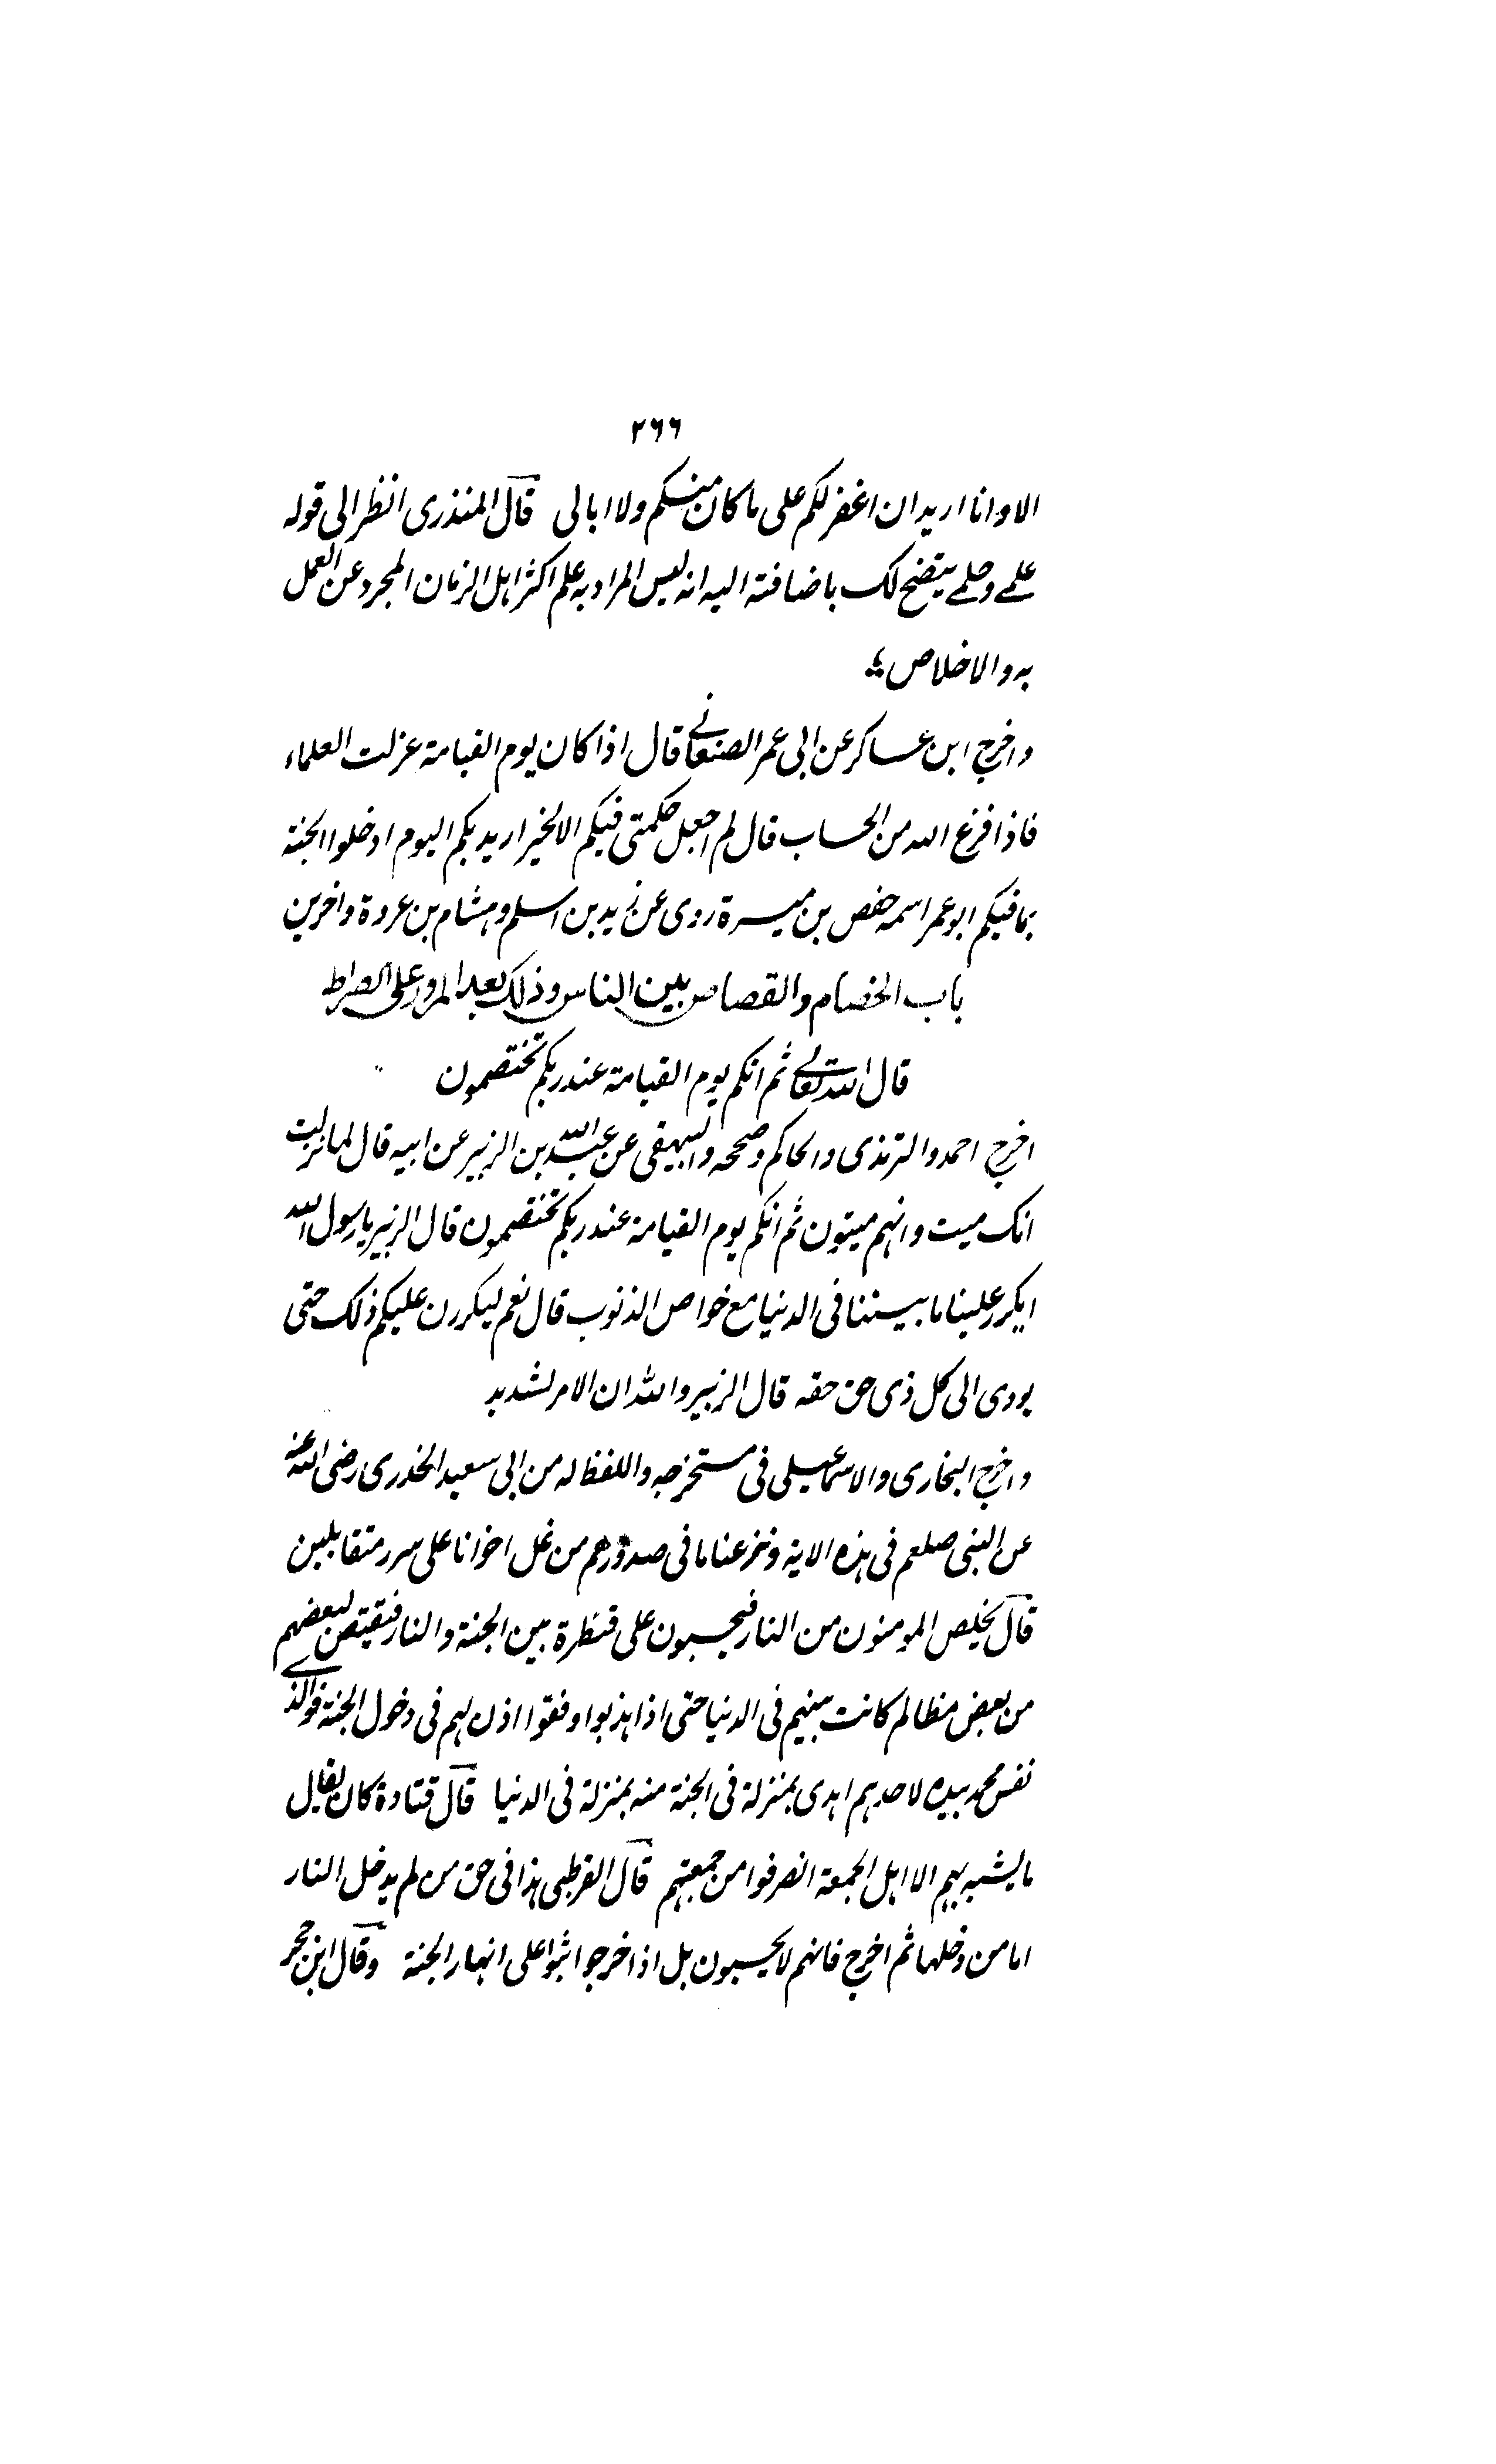 ٢٦٦
الا وانا اريد ان اغفر لكم على ما كان منكم ولا ابالى قال المنذرى انظر الى قوله
علمے وحلمے يتضح لك باضافته اليه انه ليس المراد به علم اكثر اهل الزمان المجرد عن العمل
به والاخلاص
واخرج ابن عساكر عن ابى عمر الصنعانے قال اذا كان يوم القيامة عزلت العلماء
فاذا فرغ الله من الحساب قال لم اجعل حكمتى فيكم الا لخير اريد بكم اليوم ادخلوا الجنة
بما فيكم ابو عمر اسمه حفص بن ميسرة روى عن زيد بن اسلم وهشام بن عروة واخرين
باب الخصام والقصاص بين الناس وذلك بعد المرور على الصراط
قال الله تعالے ثم انكم يوم القيامة عند ربكم تختصمون
اخرج احمد والترمذى والحاكم وصححه والبيهقى عن عبد الله بن الزبير عن ابيه قال لما نزلت
انك ميت وانهم ميتون ثم انكم يوم القيامة عند ربكم تختصمون قال الزبير يا رسول الله
ايكرر علينا ما بيننا فى الدنيا مع خواص الذنوب قال نعم ليكررن عليكم ذلك حتى
يودى الى كل ذى حق حقه قال الزبير والله ان الامر لشديد
واخرج البخارى والاسماعيلى فى مستخرجه واللفظ له من ابى سعيد الخدرى رضى الله عنه
عن النبى صلعم فى هذه الاية ونزعنا ما فى صدورهم من غل اخوانا على سرر متقابلين
قال يخلص المومنون من النار فيحبسون على قنطرة بين الجنة والنار فيقتص لبعضهم
من بعض مظالم كانت بينهم فى الدنيا حتى اذا هذبوا ونقوا اذن لهم فى دخول الجنة فوالذے
نفس محمد بيده لاحدهم اهدى بمنزلة فى الجنة منه بمنزلة فى الدنيا قال قتادة كان يقال
ما يشبه بهم الا اهل الجمعة انصرفوا من جمعتهم قال القرطبى هذا فى حق من لم يدخل النار
اما من دخلها ثم اخرج فانهم لا يحبسون بل اذا خرجوا بثوا على انهار الجنة وقال ابن حجر